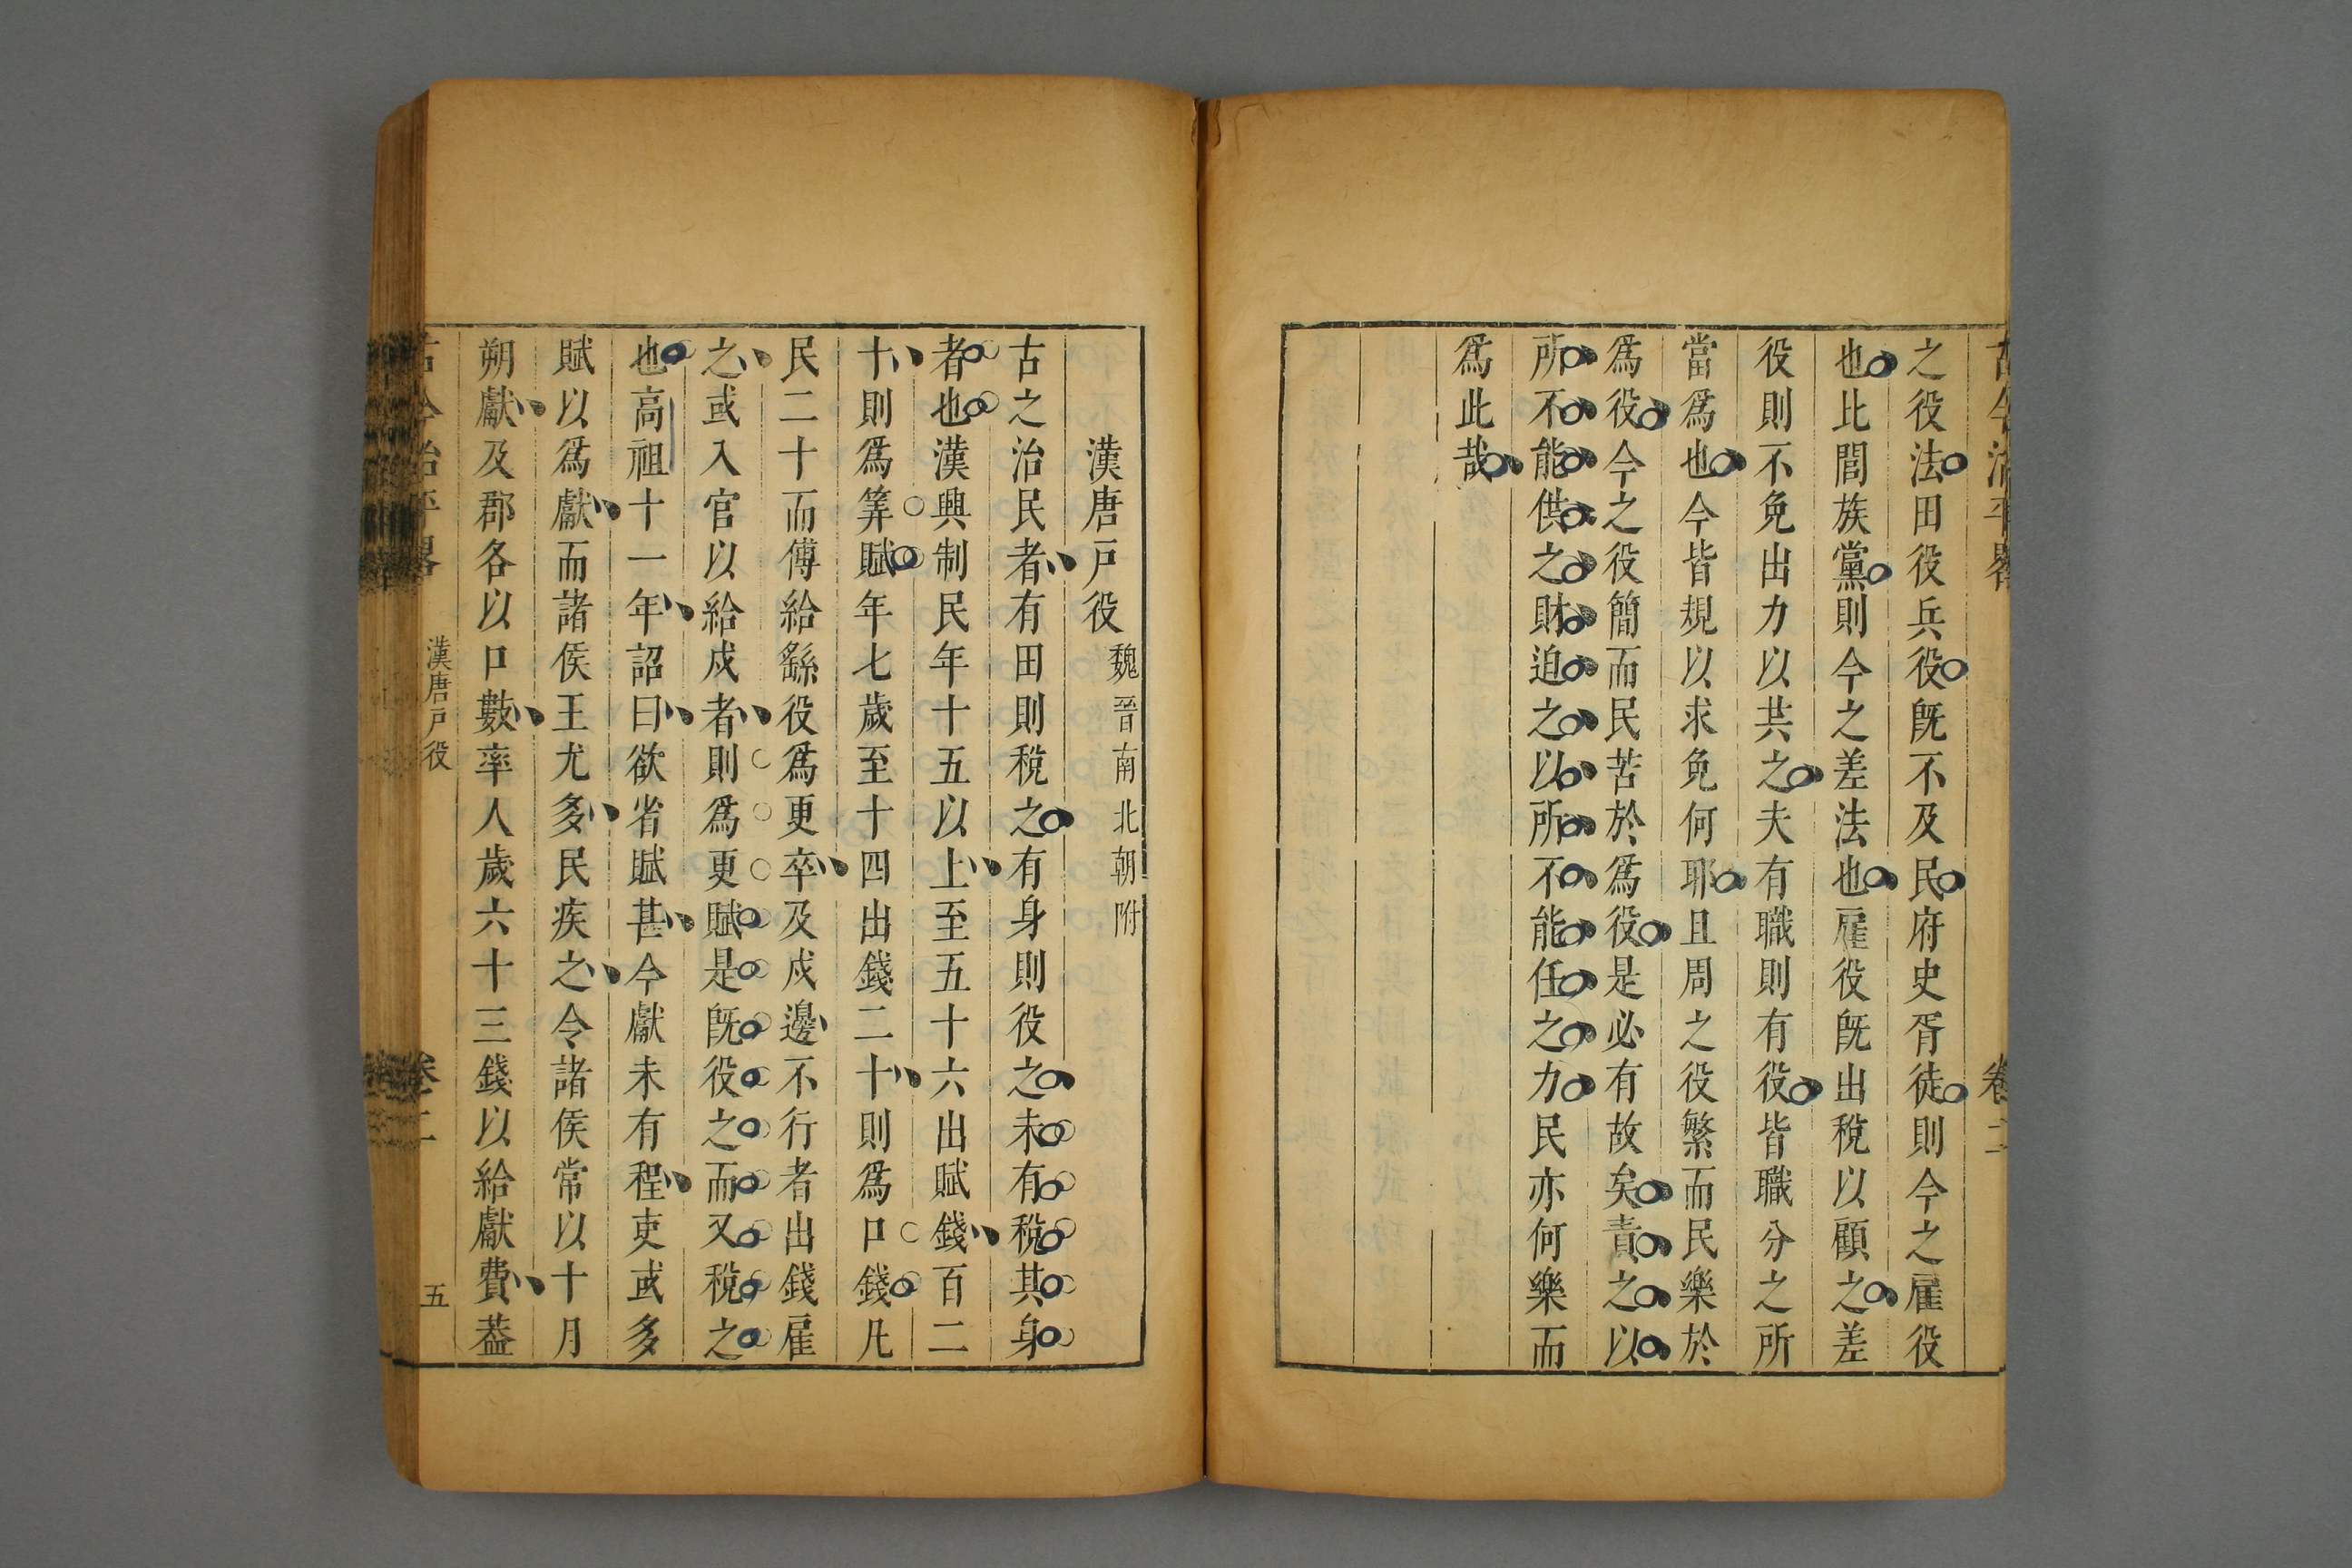 古今治平畧 卷二
之役法田役兵役旣不及民府史胥徒則今之雇役
也比閭族黨則今之差法也雇役旣出稅以顧之差
役則不免出力以共之夫有職則有役皆職分之所
當爲也今皆規以求免何耶且周之役繁而民樂於
爲役今之役簡而民苦於爲役是必有故矣責之以
所不能供之財迫之以所不能任之力民亦何樂而
爲此哉
漢唐戸役 魏晉南北朝附
古之治民者有田則稅之有身則役之未有稅其身
者也漢興制民年十五以上至五十六出賦錢百二
十則爲筭賦年七歲至十四出錢二十則爲口錢凡
民二十而傅給繇役爲更卒及戍邊不行者出錢雇
之或入官以給戍者則爲更賦是旣役之而又稅之
也高祖十一年詔曰欲省賦甚今獻未有程吏或多
賦以爲獻而諸侯王尤多民疾之令諸侯常以十月
朔獻及郡各以口數率人歲六十三錢以給獻費葢
古今治平畧 漢唐戸役 卷二 五